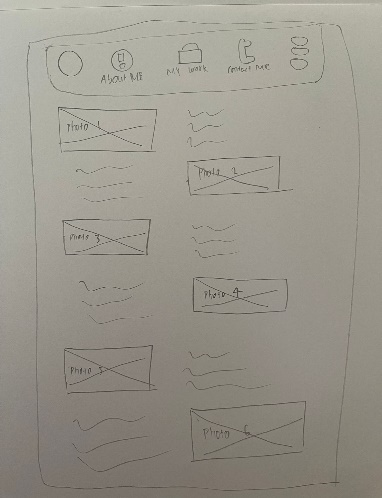 About ME
My work
contact me
Photo 1
Photo 2
Photo 3
Photo 4
Photo 5
Photo 6